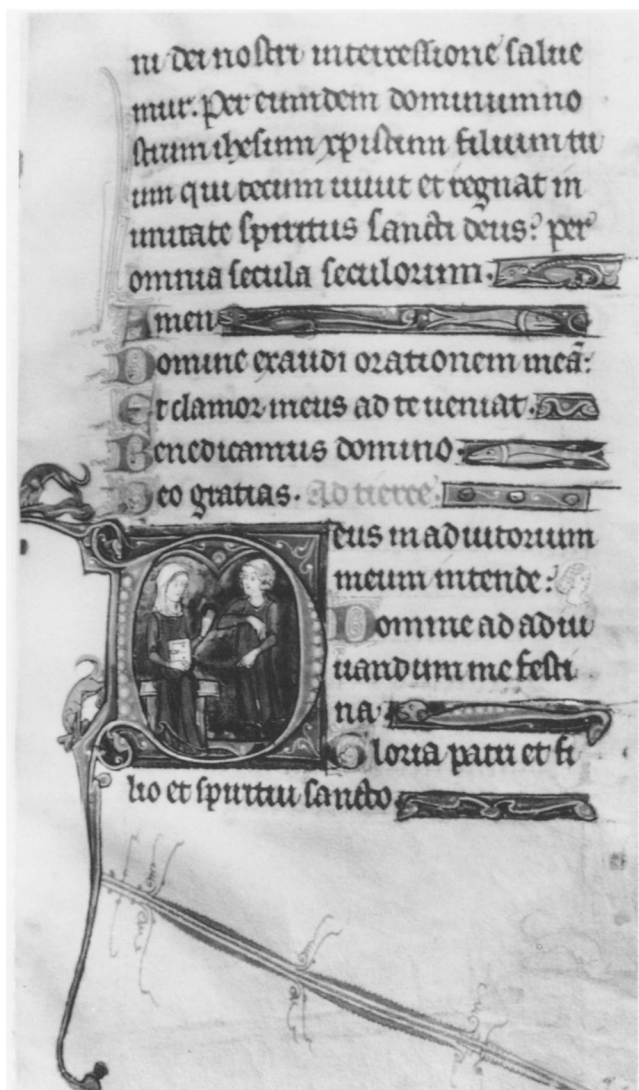 ni dei nostri intercessione salue
mur. Per eumdem dominum no
strum ihesum xpistum filium tu
um qui tecum uiuit et regnat in
unitate spiritus sancti deus: per
omnia secula seculorum.
Amen
Domine exaudi orationem meā:
Et clamor meus ad te ueniat.
Benedicamus domino.
Deo gratias. Ad tierce
Deus in adiutorium
meum intende:
Domine ad adiu
uandum me festi
na.
Gloria patri et fi
lio et spiritui sancto.